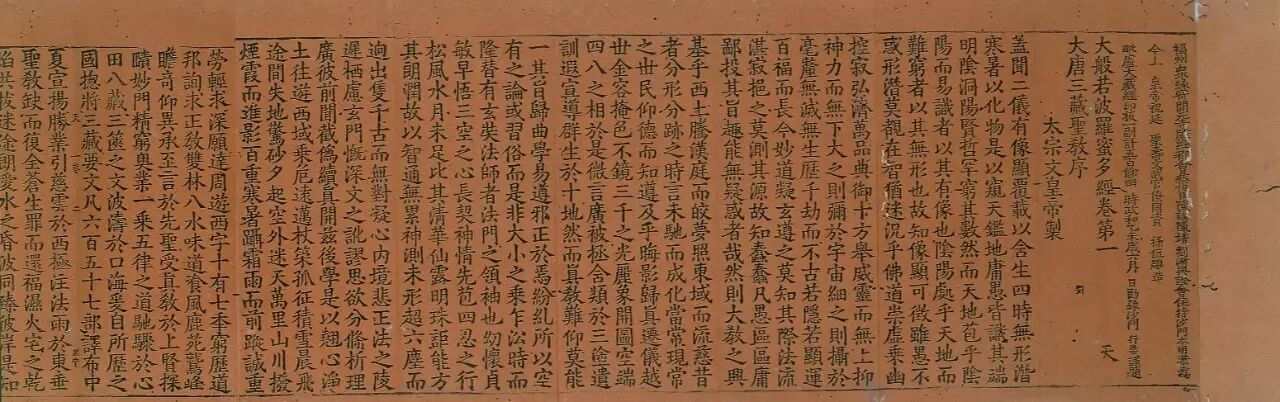 福州衆緣寄開元寺雕經都會蔡俊臣陳詢陳靖劉漸與證會住持沙門本明恭爲
今上皇帝祝延 聖壽文武官僚同資 祿位雕造
毗盧大藏經印板一副計五百餘函時政和乙未歲六月 日勸緣沙門 行崇謹題
大般若波羅蜜多經卷第一 天
大唐三藏聖教序
太宗文皇帝製
蓋聞二儀有像顯覆載以含生四時無形潛
寒暑以化物是以窺天鑑地庸愚皆識其端
明陰洞陽賢哲罕窮其數然而天地苞乎陰
陽而易識者以其有像也陰陽處乎天地而
難窮者以其無形也故知像顯可徵雖愚不
惑形潛莫覩在智猶迷況乎佛道崇虛乗幽
控寂弘濟萬品典御十方舉威靈而無上抑
神力而無下大之則彌於宇宙細之則攝於
毫釐無滅無生歷千劫而不古若隱若顯運
百福而長今妙道凝玄遵之莫知其際法流
湛寂挹之莫測其源故知蠢蠢凡愚區區庸
鄙投其旨趣能無疑惑者哉然則大教之興
基乎西土騰漢庭而皎夢照東域而流慈昔
者分形分跡之時言未馳而成化當常現常
之世民仰德而知遵及乎晦影歸真遷儀越
世金容掩色不鏡三千之光麗象開圖空端
四八之相於是微言廣被拯含類於三途遺
訓遐宣導群生於十地然而真教難仰莫能
一其旨歸曲學易遵邪正於焉紛糺所以空
有之論或習俗而是非大小之乗乍沿時而
隆替有玄奘法師者法門之領袖也幼懷貞
敏早悟三空之心長契神情先苞四忍之行
松風水月未足比其清華仙露明珠詎能方
其朗潤故以智通無累神測未形超六塵而
迥出隻千古而無對凝心内境悲正法之陵
遲栖慮玄門慨深文之訛謬思欲分條析理
廣彼前聞截僞續真開兹後學是以翹心淨
土往遊西域乗危遠邁杖策孤征積雪晨飛
途間失地驚砂夕起空外迷天萬里山川撥
煙霞而進影百重寒暑躡霜雨而前蹤誠重
勞輕求深願達周遊西宇十有七年窮歷道
邦詢求正教雙林八水味道飡風鹿苑鷲峰
瞻奇仰異承至言於先聖受真教於上賢探
賾妙門精窮奥業一乗五律之道馳驟於心
田八藏三篋之文波濤於口海爰自所歷之
國揔將三藏要文凡六百五十七部譯布中
夏宣揚勝業引慈雲於西極注法雨於東垂
聖教缺而復全蒼生罪而還福濕火宅之乾
焰共拔迷途朗愛水之昏波同臻彼岸是知